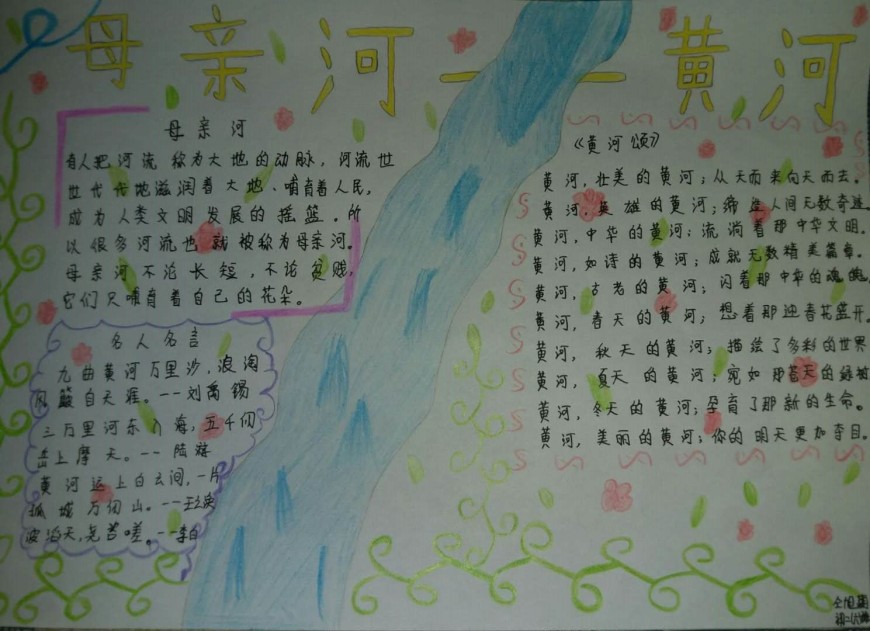 母亲河——黄河
母亲河
有人把河流称为大地的动脉，河流世
世代代地滋润着大地、哺育着人民，
成为人类文明发展的摇篮。所
以很多河流也就被称为母亲河。
母亲河不论长短，不论贫贱，
它们只哺育着自己的花朵。
名人名言
九曲黄河万里沙，浪淘
风簸自天涯。--刘禹锡
三万里河东入海，五千仞
岳上摩天。--陆游
黄河远上白云间，一片
孤城万仞山。--王之涣
波滔天，尧咨嗟。--李白
《黄河颂》
黄河，壮美的黄河；从天而来向天而去。
黄河，英雄的黄河；缔造人间无数奇迹。
黄河，中华的黄河；流淌着那中华文明。
黄河，如诗的黄河；成就无数精美篇章。
黄河，古老的黄河；闪着那中华的魂魄
黄河，春天的黄河；想着那迎春花盛开。
黄河，秋天的黄河；描绘了多彩的世界
黄河，夏天的黄河；宛如那苍天的绿
黄河，冬天的黄河；孕育了那新的生命。
黄河，美丽的黄河；你的明天更加夺目。